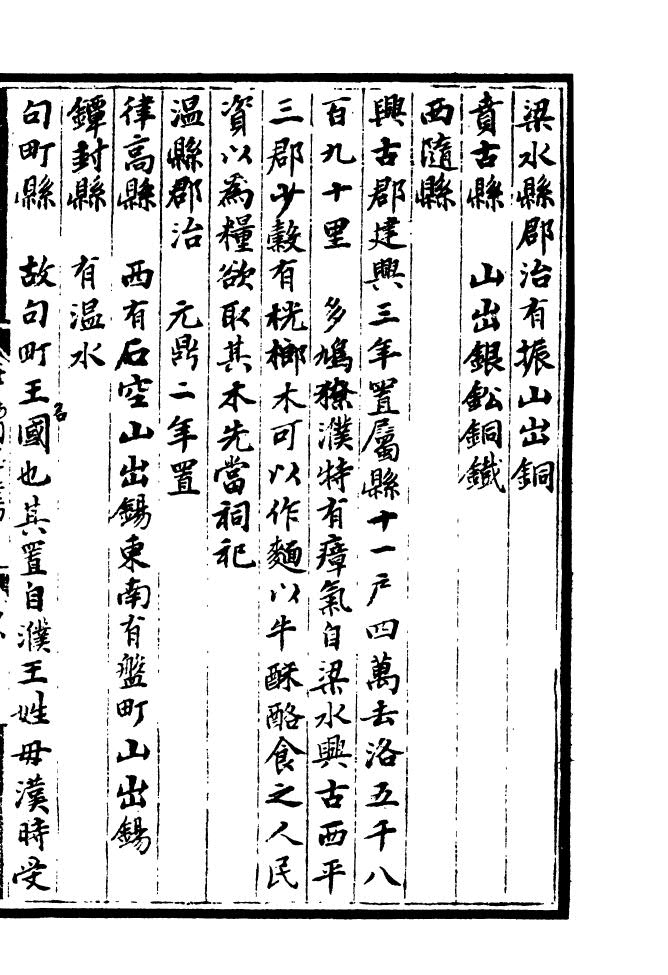 梁水縣郡治有振山出銅
賁古縣　山出銀鈆銅鐵
西隨縣
興古郡建興三年置屬縣十一戶四萬去洛五千八
百九十里　多鳩獠濮特有瘴氣自梁水興古西平
三郡少穀有桄榔木可以作麵以牛酥酪食之人民
資以為糧欲取其木先當祠祀
温縣郡治　元鼎二年置
律高縣　西有石空山出錫東南有盤町山出錫
鐔封縣　有温水
句町縣　故句町王國也其置自濮王姓毋漢時受
名